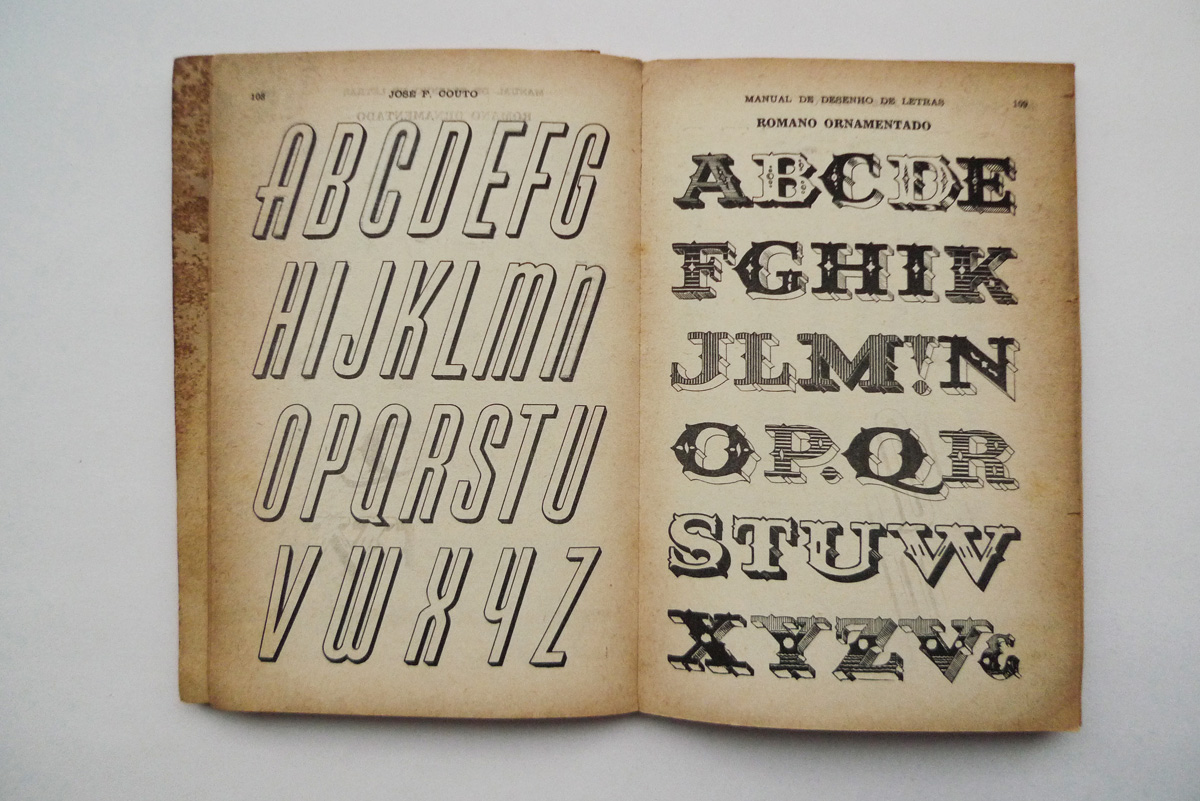 108
JOSÉ F. COUTO
ABCDEFG
HIJKLmn
OPQRSTU
VWXYZ
MANUAL DE DESENHO DE LETRAS
109
ROMANO ORNAMENTADO
ABCDE
FGHIK
JLM!N
OP.QR
STUW
XYZV&